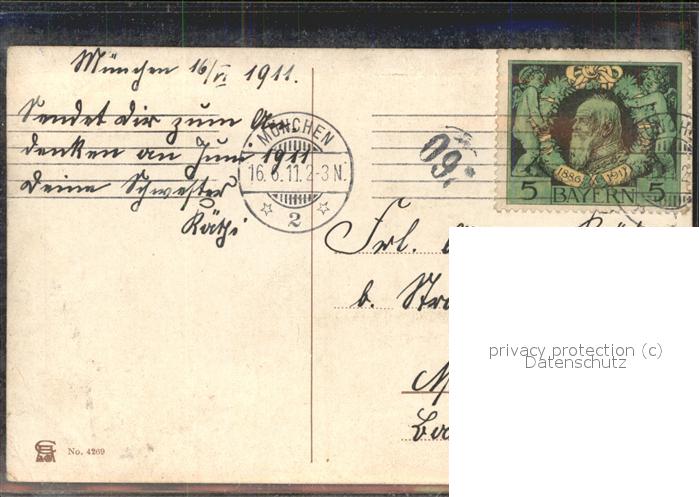 München 16/VI 1911.
Sendet dir zum An-
denken an Juni 1911
Deine Schwester
Käthi
MÜNCHEN
16.6.11.2-3N.
2
09.
1886 1911
5 BAYERN 5
Frl.
b. Str
privacy protection (c)
Datenschutz
No. 4269